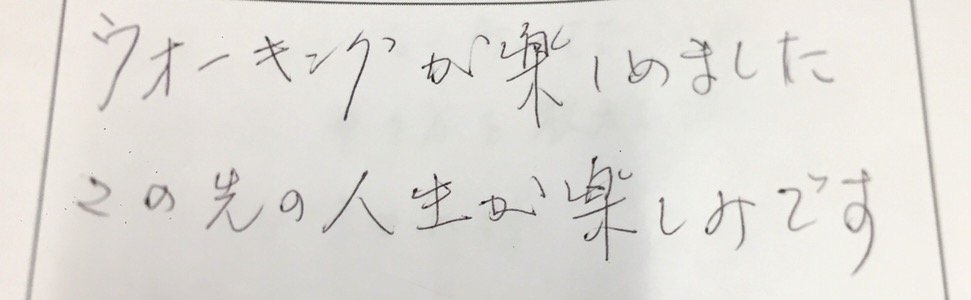 ウォーキングが楽しめました
この先の人生が楽しみです